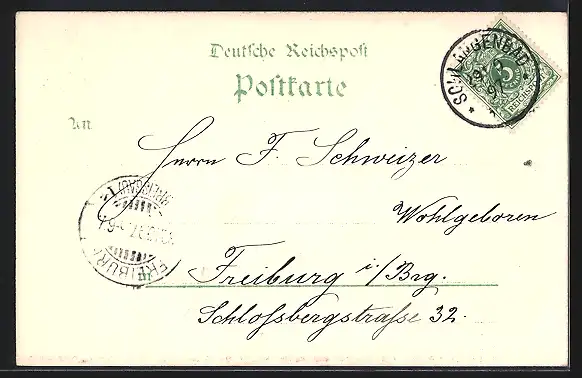 Deutsche Reichspost
Postkarte
SCHLANGENBAD
REICHSPOST
5
An
Herrn F. Schweizer
Wohlgeboren
Freiburg i/Brg.
Schlossbergstrasse 32.
FREIBURG
(BREISGAU) 1